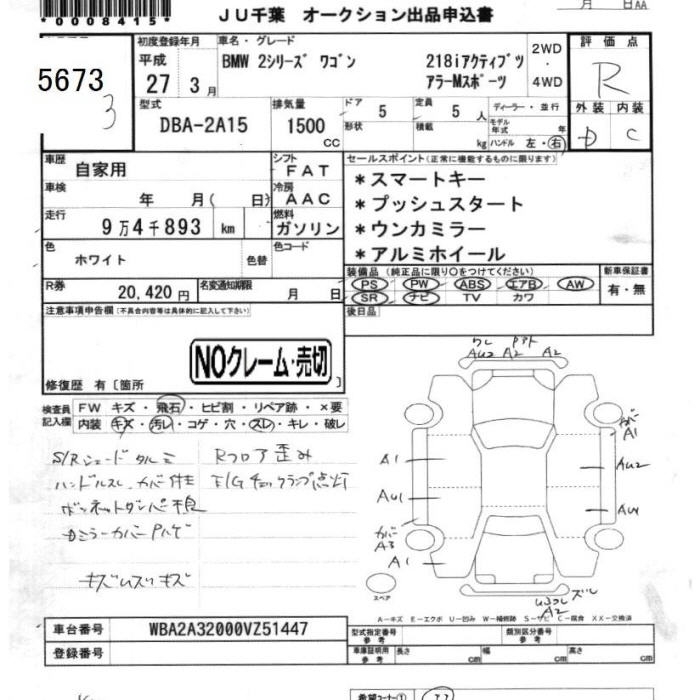 *00008415*
JU千葉 オークション出品申込書
月 日AA
5673
3
初度登録年月 車名・グレード
平成 27 3 月
BMW 2シリーズ ワゴン 218iアクティブツ
アラーMスポーツ
2WD
・
4WD
評価点
R
型式 DBA-2A15
排気量 1500 CC
ドア 5
形状
定員 5 人
積載 kg
ディーラー・並行
モデル年式 年
ハンドル 左・右
外装 内装
D C
車歴 自家用
シフト FAT
車検 年 月( 日)
冷房 AAC
走行 9万4千893 km
燃料 ガソリン
色 ホワイト 色替
色コード
R券 20,420円
名変通知期限 月 日
セールスポイント(正常に機能するものに限ります)
*スマートキー
*プッシュスタート
*ウンカミラー
*アルミホイール
装備品(純正品に限り○をつけてください)
PS PW ABS エアB AW
SR ナビ TV カワ
新車保証書
有・無
後日品
注意事項申告欄(不具合内容等は具体的に記入して下さい)
NOクレーム・売切
修復歴 有〔箇所 〕
検査員記入欄
FW キズ・飛石・ヒビ割・リペア跡・×要
内装 キズ・汚レ・コゲ・穴・スレ・キレ・破レ
S/Rシェードタルミ Rフロア歪み
ハンドルスレ、カバー
E/Gチェックランプ点灯
ボンネットダンパー不良
ミラーカバー
キズ キズ
AU2 A2 A2
A1
A1
AU2
AU1
カバー
A3
A1
A2
スペア
A-キズ E-エクボ U-凹み W-補修跡 S-サビ C-腐食 XX-交換済
車台番号 WBA2A32000VZ51447
登録番号
型式指定番号 参考
類別区分番号 参考
車庫証明用 参考 長さ cm 幅 cm 高さ cm
希望コーナー①